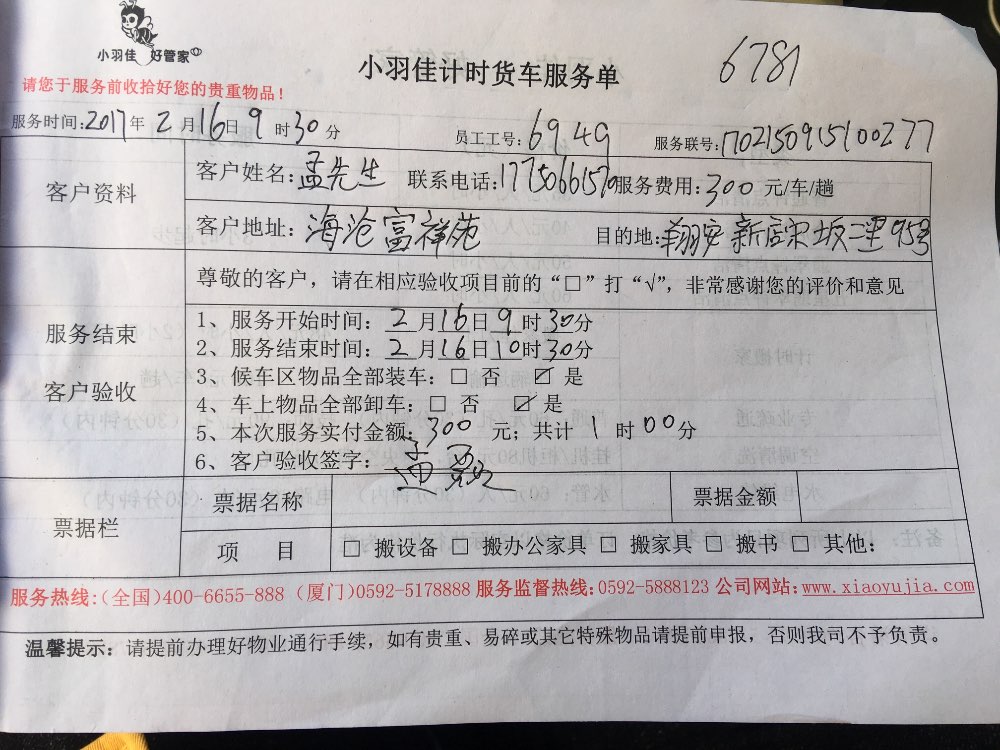 小羽佳 好管家
小羽佳计时货车服务单
6781
请您于服务前收拾好您的贵重物品！
服务时间：2017年2月16日9时30分 员工工号：6949 服务联号：1702150915100277
客户资料
客户姓名：孟先生 联系电话：17750661570 服务费用：300元/车/趟
客户地址：海沧富祥苑 目的地：翔安新店宋坂二里95号
尊敬的客户，请在相应验收项目前的“□”打“√”，非常感谢您的评价和意见
服务结束
客户验收
1、服务开始时间：2月16日9时30分
2、服务结束时间：2月16日10时30分
3、候车区物品全部装车：□ 否 ☑ 是
4、车上物品全部卸车：□ 否 ☑ 是
5、本次服务实付金额：300元；共计1时00分
6、客户验收签字：孟
票据栏
票据名称 票据金额
项 目 □ 搬设备 □ 搬办公家具 □ 搬家具 □ 搬书 □ 其他：
服务热线：(全国)400-6655-888 (厦门)0592-5178888 服务监督热线：0592-5888123 公司网站：www.xiaoyujia.com
温馨提示：请提前办理好物业通行手续，如有贵重、易碎或其它特殊物品请提前申报，否则我司不予负责。